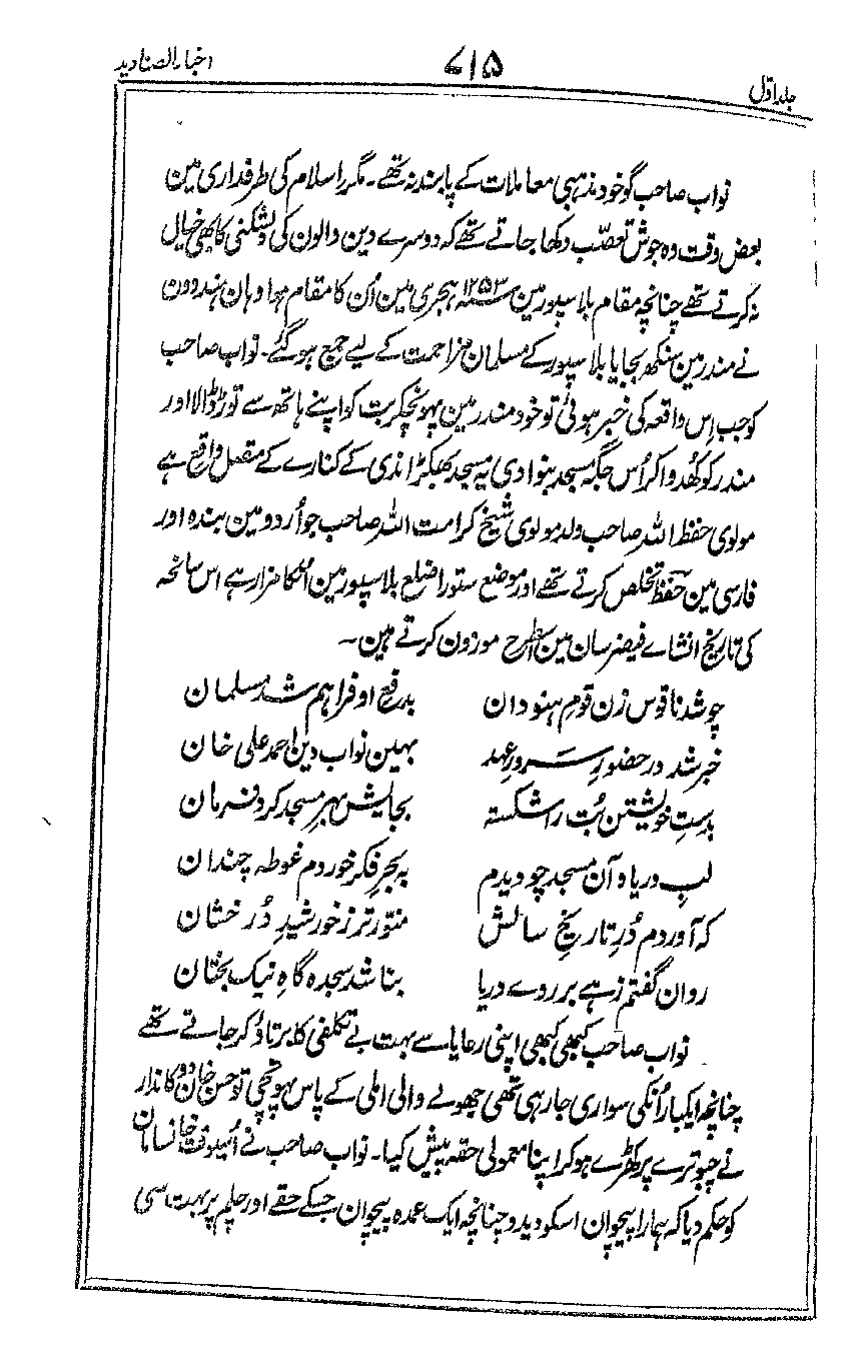 جلد اوّل ۷۱۵ اخبار الصنادید
نواب صاحب گو خود مذہبی معاملات کے پابند نہ تھے۔ مگر اسلام کی طرفداری مین
بعض وقت وہ جوش تعصّب دکھا جاتے تھے کہ دوسرے دین والون کی دلشکنی کا بھی خیال
نہ کرتے تھے چنانچہ مقام بلاسپور مین ۱۲۵۳ ہجری مین اُن کا مقام ہوا وہان ہندوون
نے مندر مین سنکھ بجایا بلاسپور کے مسلمان مزاحمت کے لیے جمع ہو گئے۔ نواب صاحب
کو جب اِس واقعہ کی خبر ہوئی تو خود مندر مین پہونچکر بت کو اپنے ہاتھ سے توڑ ڈالا اور
مندر کو کھُدوا کر اُس جگہ مسجد بنوا دی یہ مسجد بھکڑا ندی کے کنارے کے متصل واقع ہے
مولوی حفظ اللہ صاحب ولد مولوی شیخ کرامت اللہ صاحب جو اُردو مین بندہ اور
فارسی مین حفظ تخلص کرتے تھے اور موضع ستورا ضلع بلاسپور مین اُنکا مزار ہے اس سانحہ
کی تاریخ انشاے فیضرسان مین اسطرح موزون کرتے ہین۔
چو شد ناقوس زن قومِ ہنودان بدفع او فراہم شد مسلمان
خبر شد در حضورِ سرورِ عہد بہین نواب دین احمد علی خان
بدستِ خویشتن بُت را شکستہ بجایش بہرِ مسجد کرد فرمان
لبِ دریا و آن مسجد چو دیدم بہ بحرِ فکر خوردم غوطہ چندان
کہ آوردم دُرِ تاریخِ سالش منوّر تر ز خورشیدِ دُرخشان
روان گفتم زہے بر روے دریا بنا شد سجدہ گاہِ نیک بختان
نواب صاحب کبھی کبھی اپنی رعایا سے بہت بے تکلفی کا برتاؤ کر جاتے تھے
چنانچہ ایکبار اُنکی سواری جا رہی تھی جھولے والی املی کے پاس پہونچی تو حسن خان دوکاندار
نے چبوترے پر کھڑے ہو کر اپنا معمولی حقہ پیش کیا۔ نواب صاحب نے اُسیوقت خانسامان
کو حکم دیا کہ ہمارا پیچوان اسکو دیدو چنانچہ ایک عمدہ پیچوان جسکے حقے اور چلم پر بہت سی